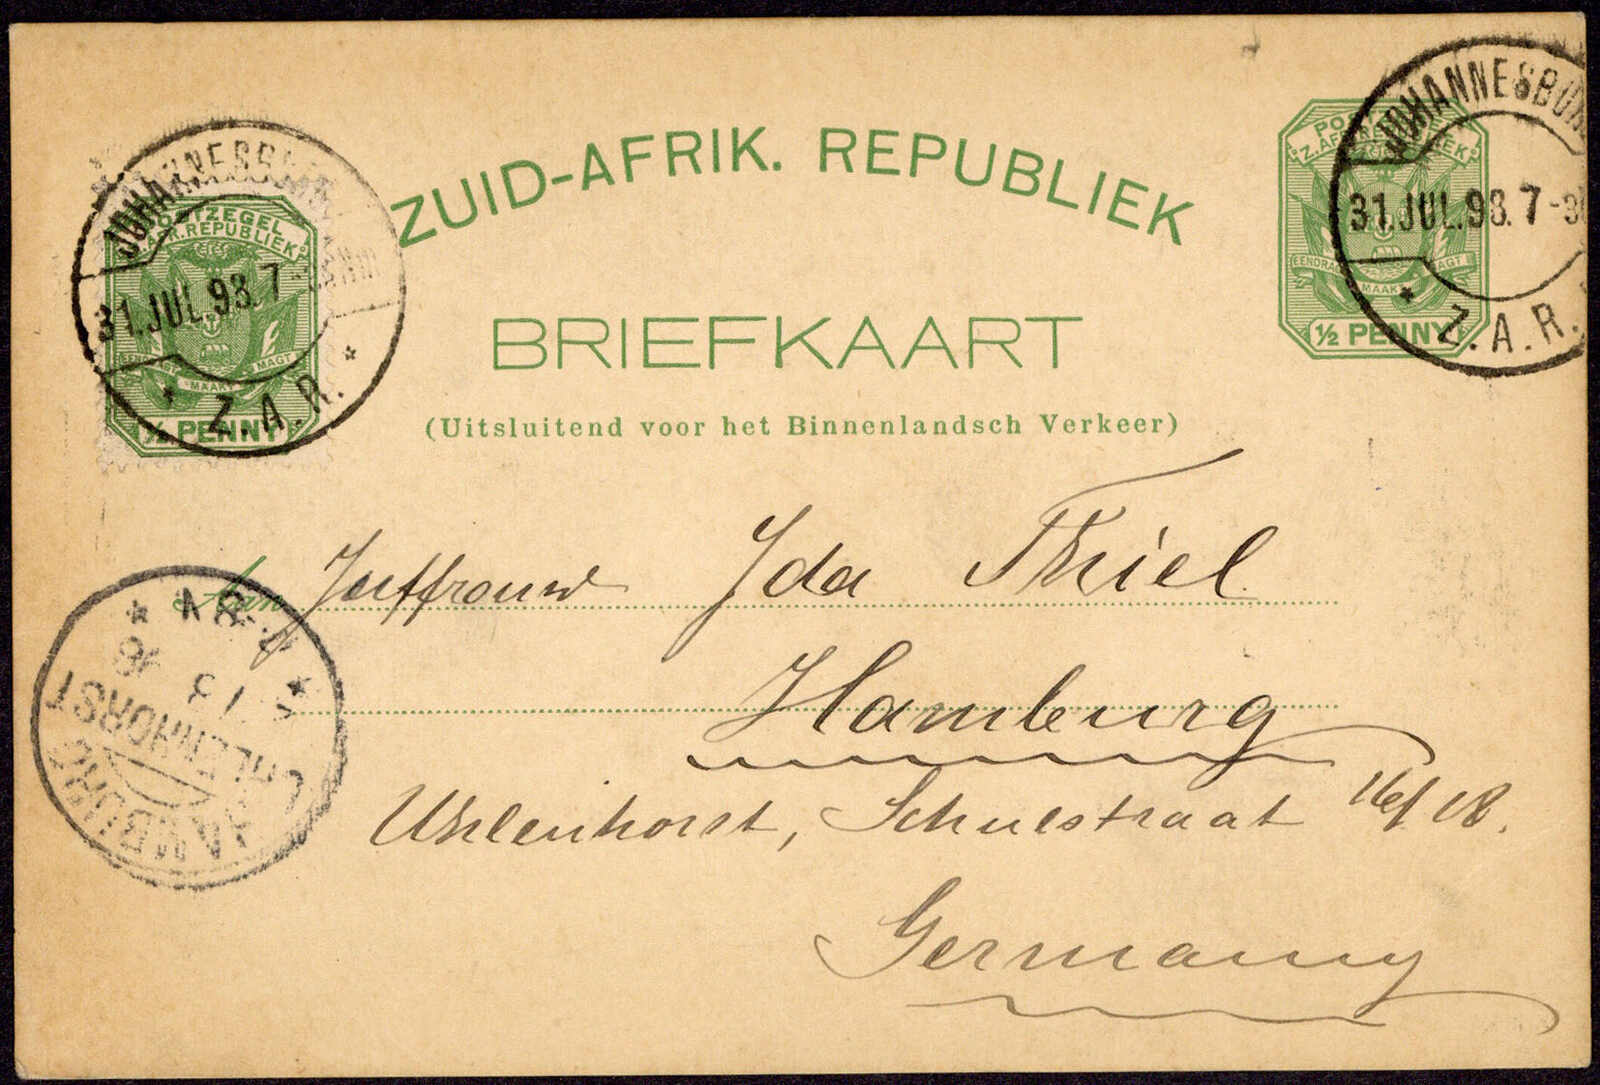 ZUID-AFRIK. REPUBLIEK
BRIEFKAART
(Uitsluitend voor het Binnenlandsch Verkeer)
JOHANNESBURG
31.JUL.98.7-30
Z.A.R.
POSTZEGEL
Z.AFR.REPUBLIEK
EENDRAGT MAAKT MAGT
½ PENNY
JOHANNESBURG
31.JUL.98.7
Z.A.R.
POSTZEGEL
Z.AFR.REPUBLIEK
EENDRAGT MAAKT MAGT
½ PENNY
Aan Juffrouw Ida Thiel
Hamburg
Uhlenhorst, Schulstraat 18.
Germany
HAMBURG
UHLENHORST